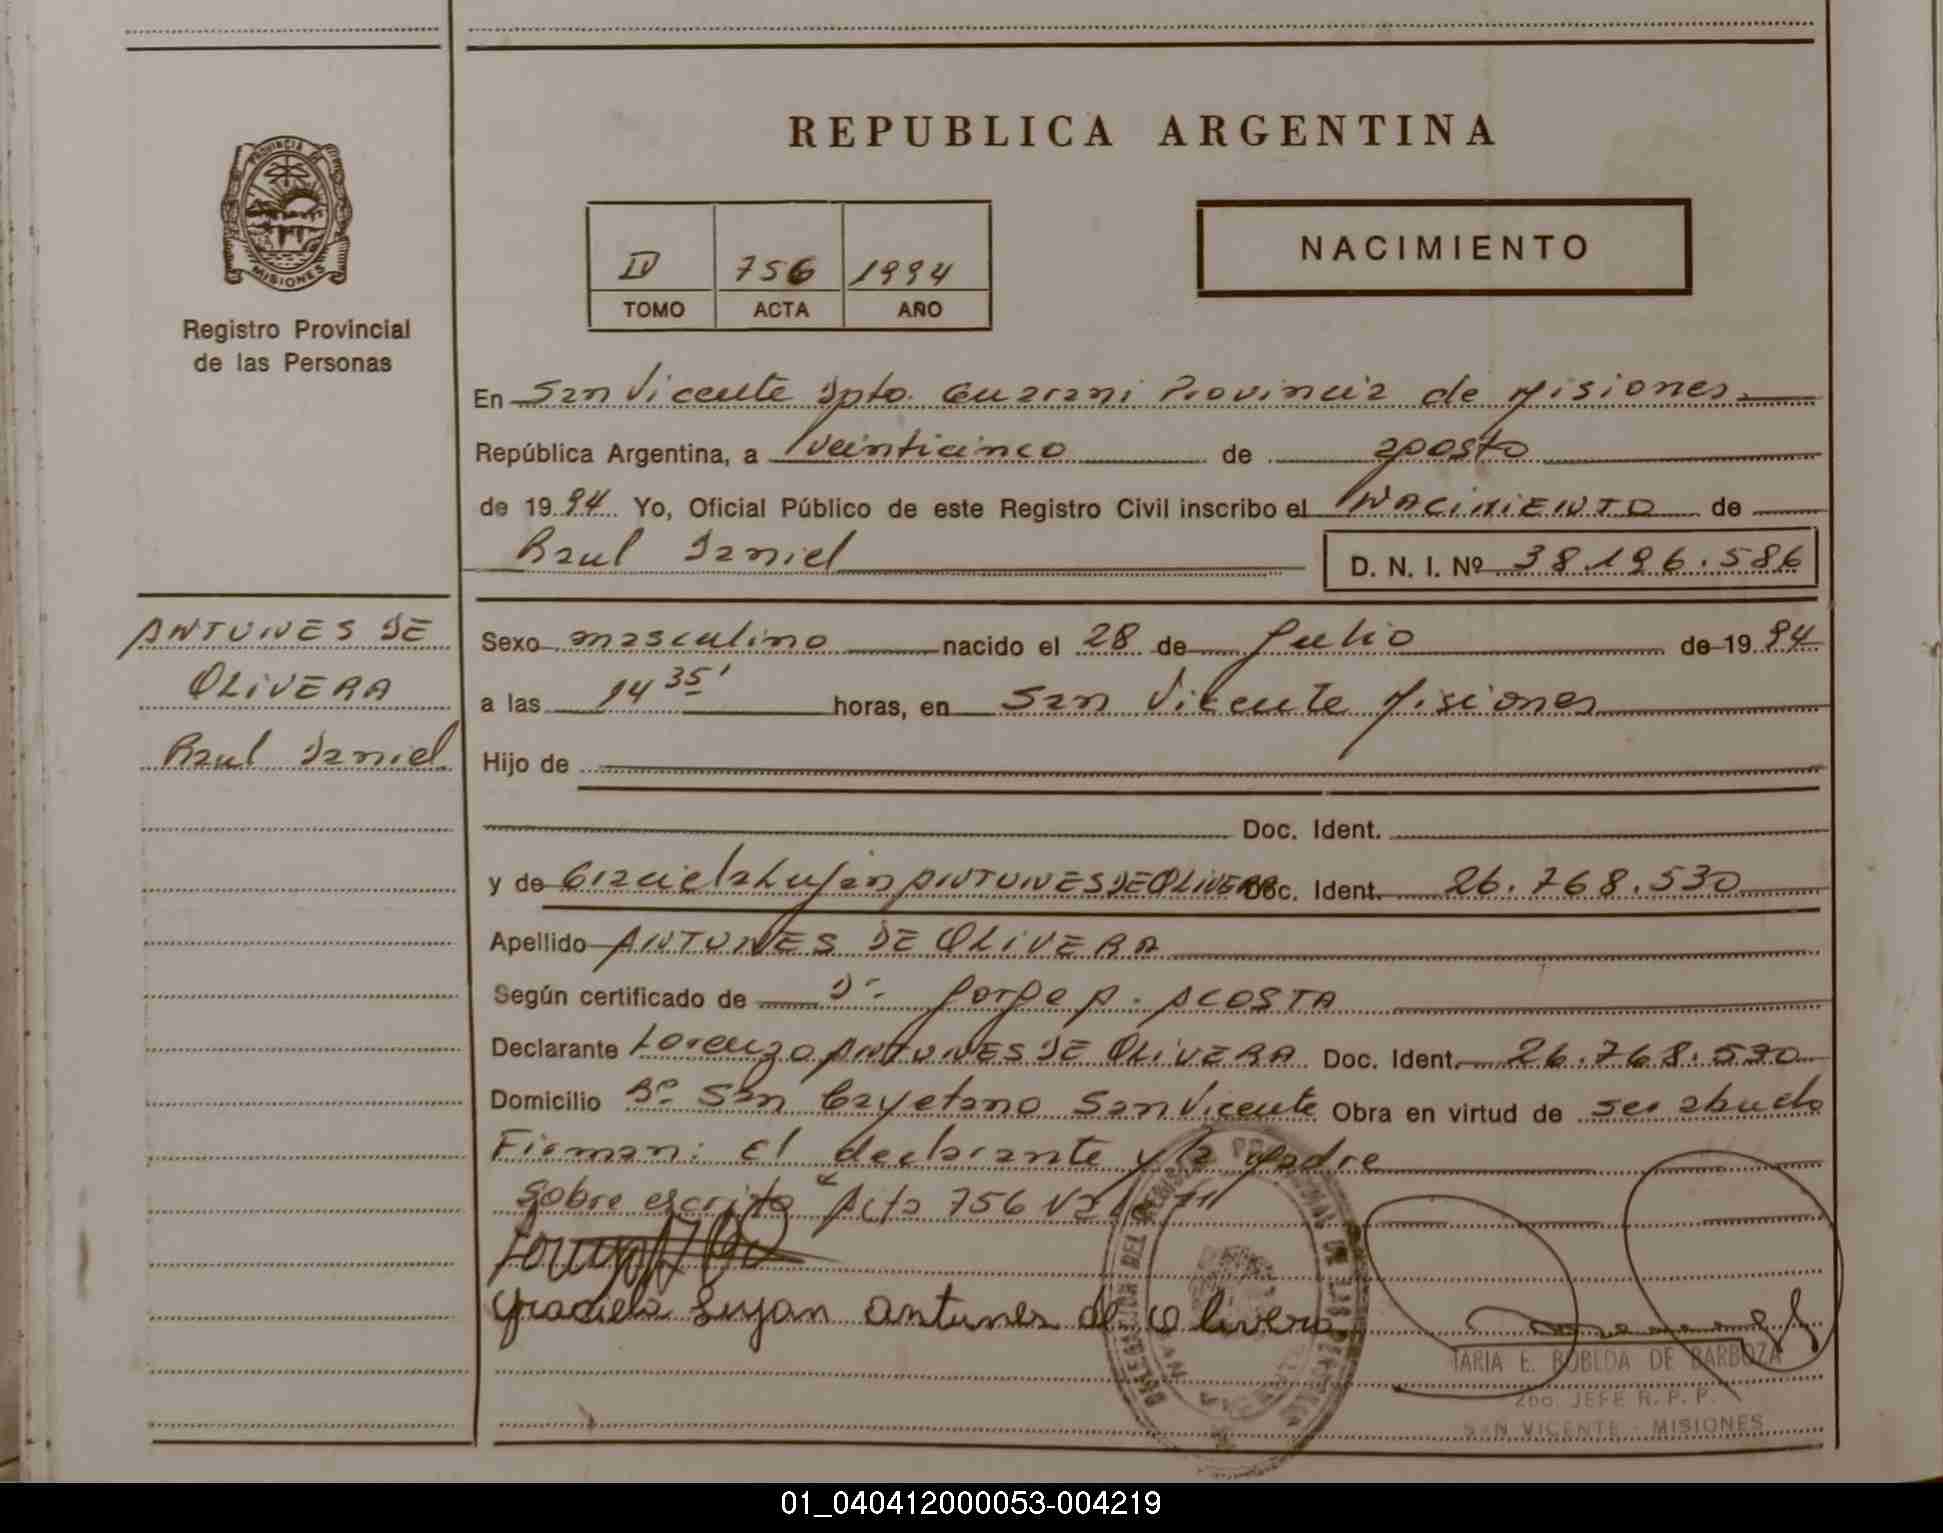 REPUBLICA ARGENTINA
PROVINCIA DE
MISIONES
Registro Provincial
de las Personas
IV 756 1994
TOMO ACTA AÑO
NACIMIENTO
En San Vicente Dpto. Guarani Provincia de Misiones
República Argentina, a veinticinco de agosto
de 1994 Yo, Oficial Público de este Registro Civil inscribo el NACIMIENTO de
Raul Daniel D. N. I. Nº 38.196.586
ANTUNES DE
OLIVERA
Raul Daniel
Sexo masculino nacido el 28 de Julio de 1994
a las 14 35' horas, en San Vicente Misiones
Hijo de
Doc. Ident.
y de Graciela Lujan ANTUNES DE OLIVERA Doc. Ident. 26.768.530
Apellido ANTUNES DE OLIVERA
Según certificado de Dr. Jorge A. ACOSTA
Declarante Lorenzo ANTUNES DE OLIVERA Doc. Ident. 26.768.530
Domicilio Bº San Cayetano San Vicente Obra en virtud de ser abuelo
Firman: el declarante y la Madre
Sobre escrito "Acta 756 Vale"
Graciela Lujan Antunes de Olivera
MARIA E. ROBLDA DE BARBOZA
2do JEFE R. P. P.
SAN VICENTE - MISIONES
01_040412000053-004219